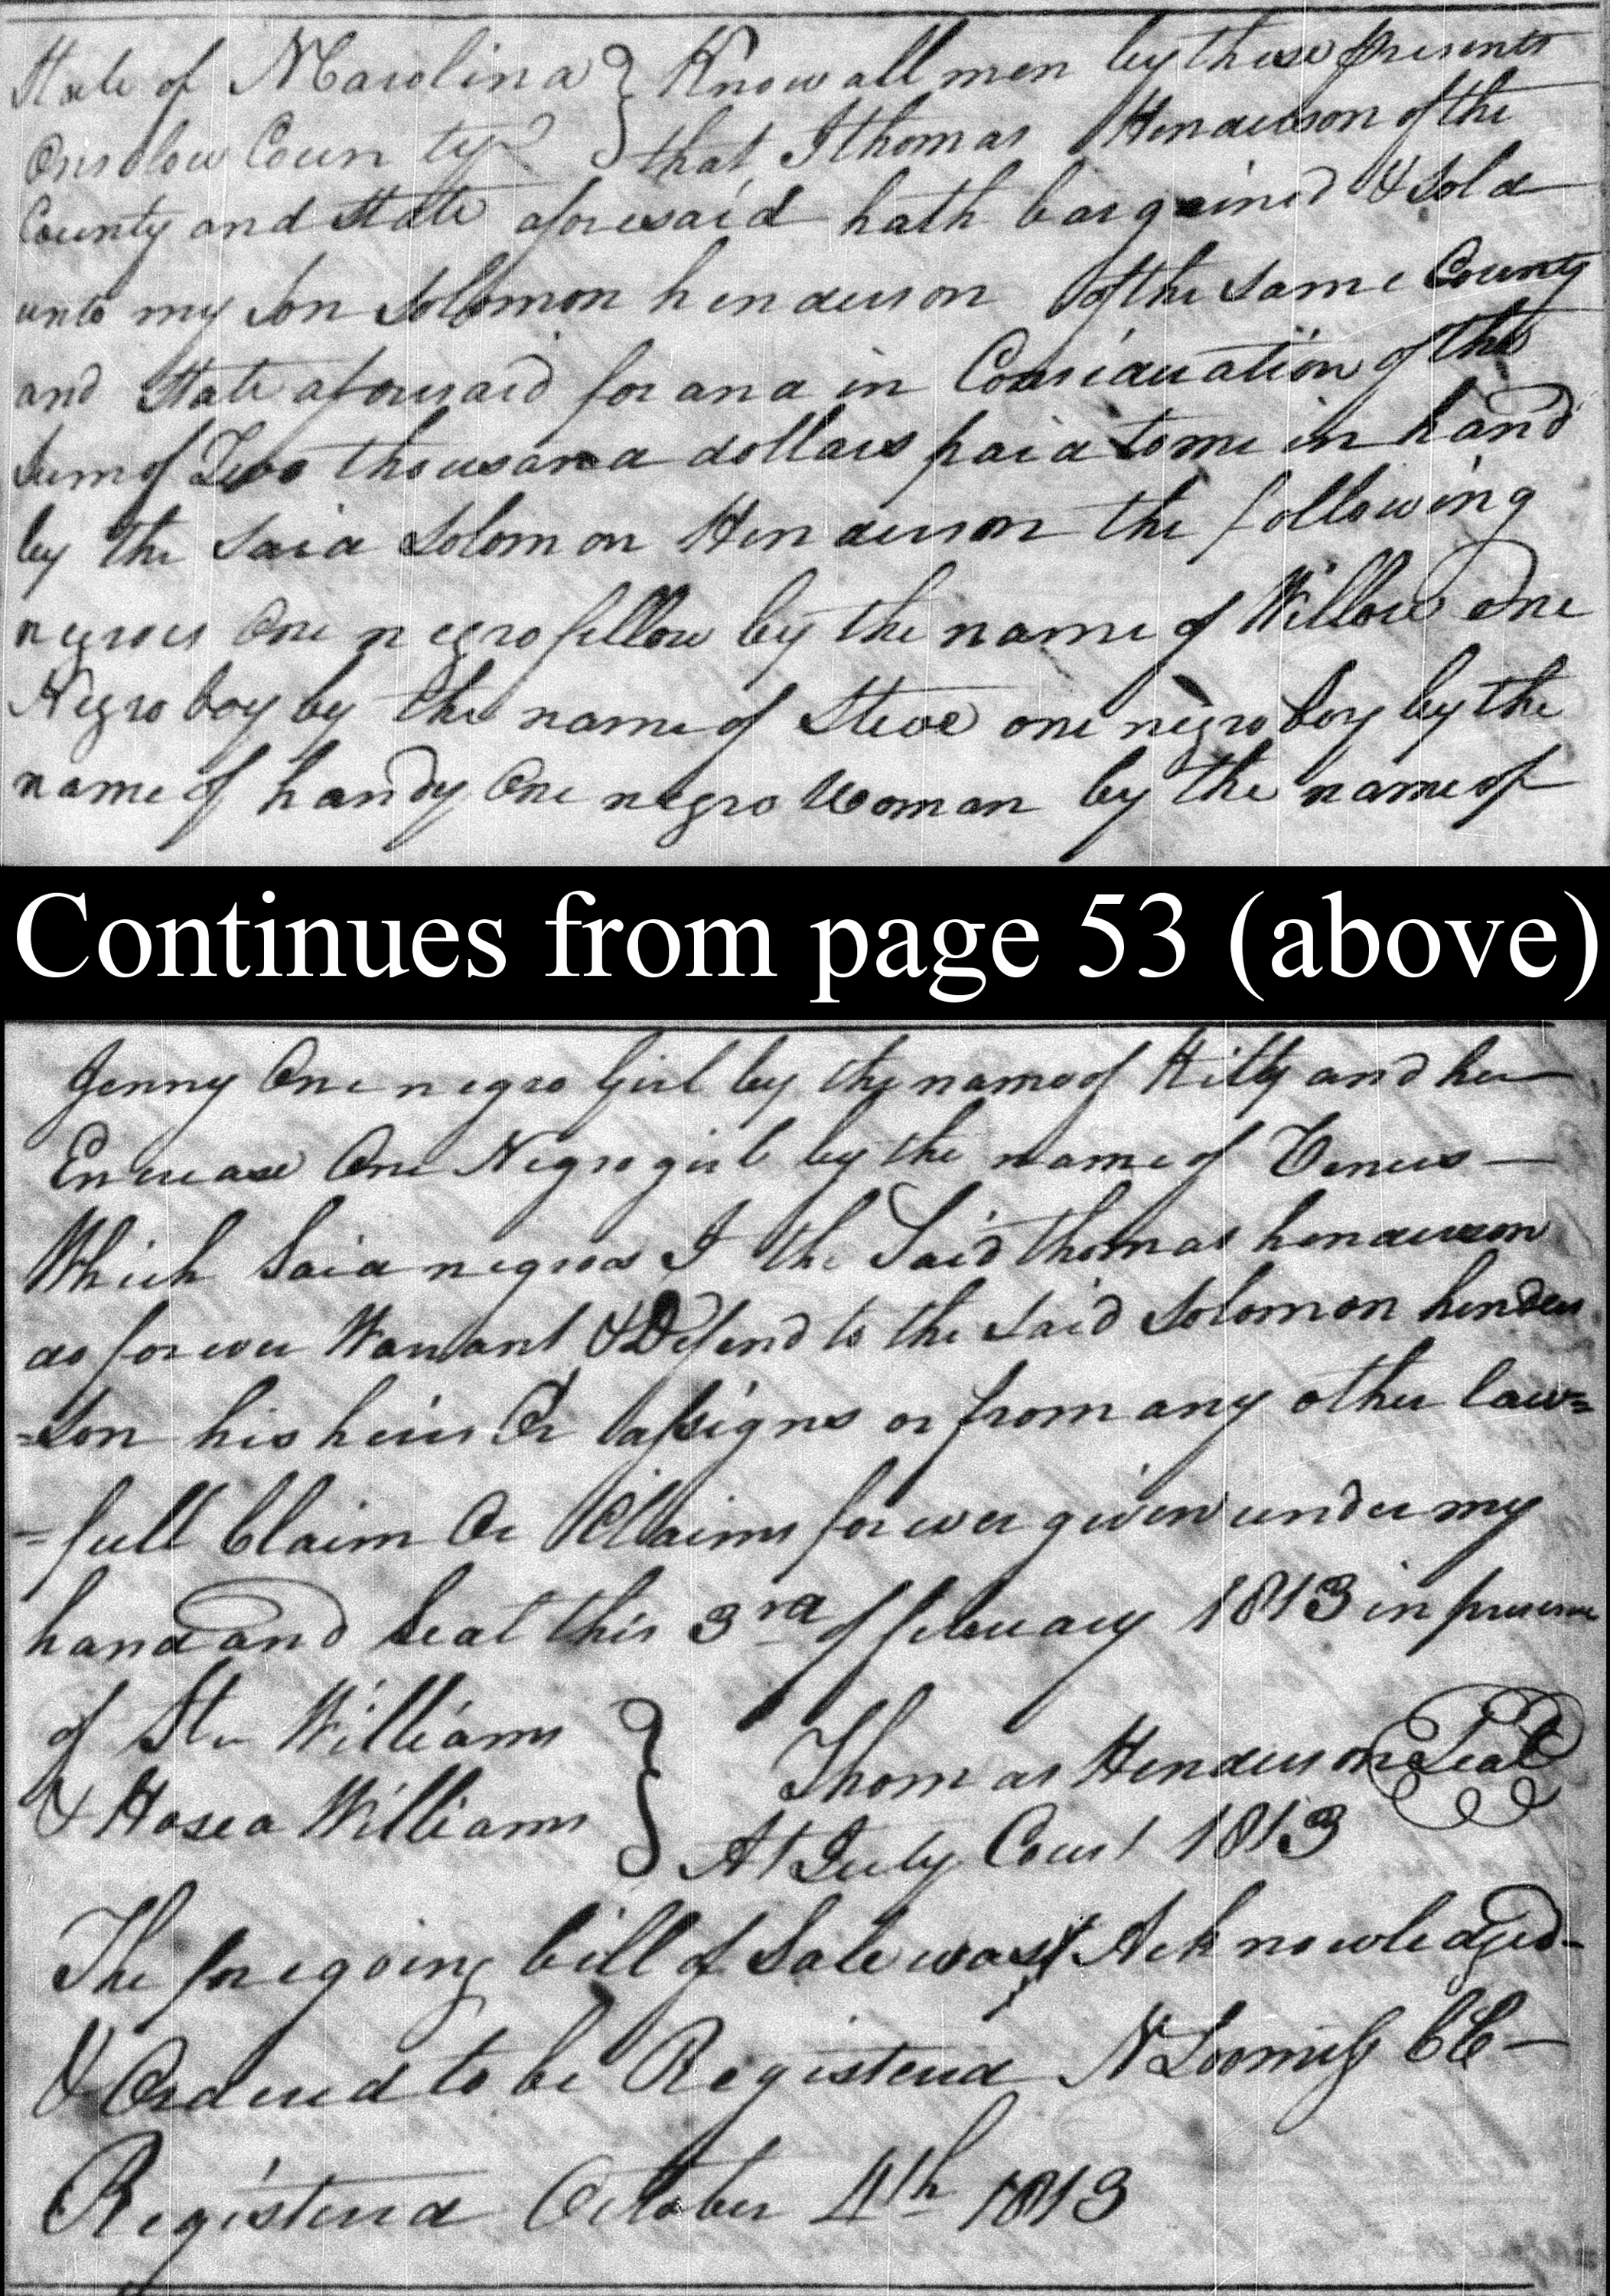 State of NCarolina } Know all men by these presents
Onslow County } that I thomas Henderson of the
County and State aforesaid hath bargained & sold
unto my son Solomon henderson of the same County
and State aforesaid for and in Consideration of the
sum of Two thousand dollars paid to me in hand
by the said Solomon Henderson the following
negroes One negro fellow by the name of Willow One
Negro boy by the name of Steve one negro boy by the
name of handy One negro Woman by the name of
Continues from page 53 (above)
Jenny One negro Girl by the name of Kitty and her
Encrease One Negro girl by the name of Venus —
Which Said negroes I the Said thomas henderson
do for ever Warrant & Defend to the said Solomon hender
=son his heirs Or assigns or from any other law=
=full Claim Or Claims for ever given under my
hand and Seal this 3rd of february 1813 in presence
of Stn Williams } Thomas Henderson Seal
& Hosea Williams } At July Court 1813
The foregoing bill of Sale was Acknowledged
& Ordered to be Registered N Loomiss CC —
Registered October 4th 1813